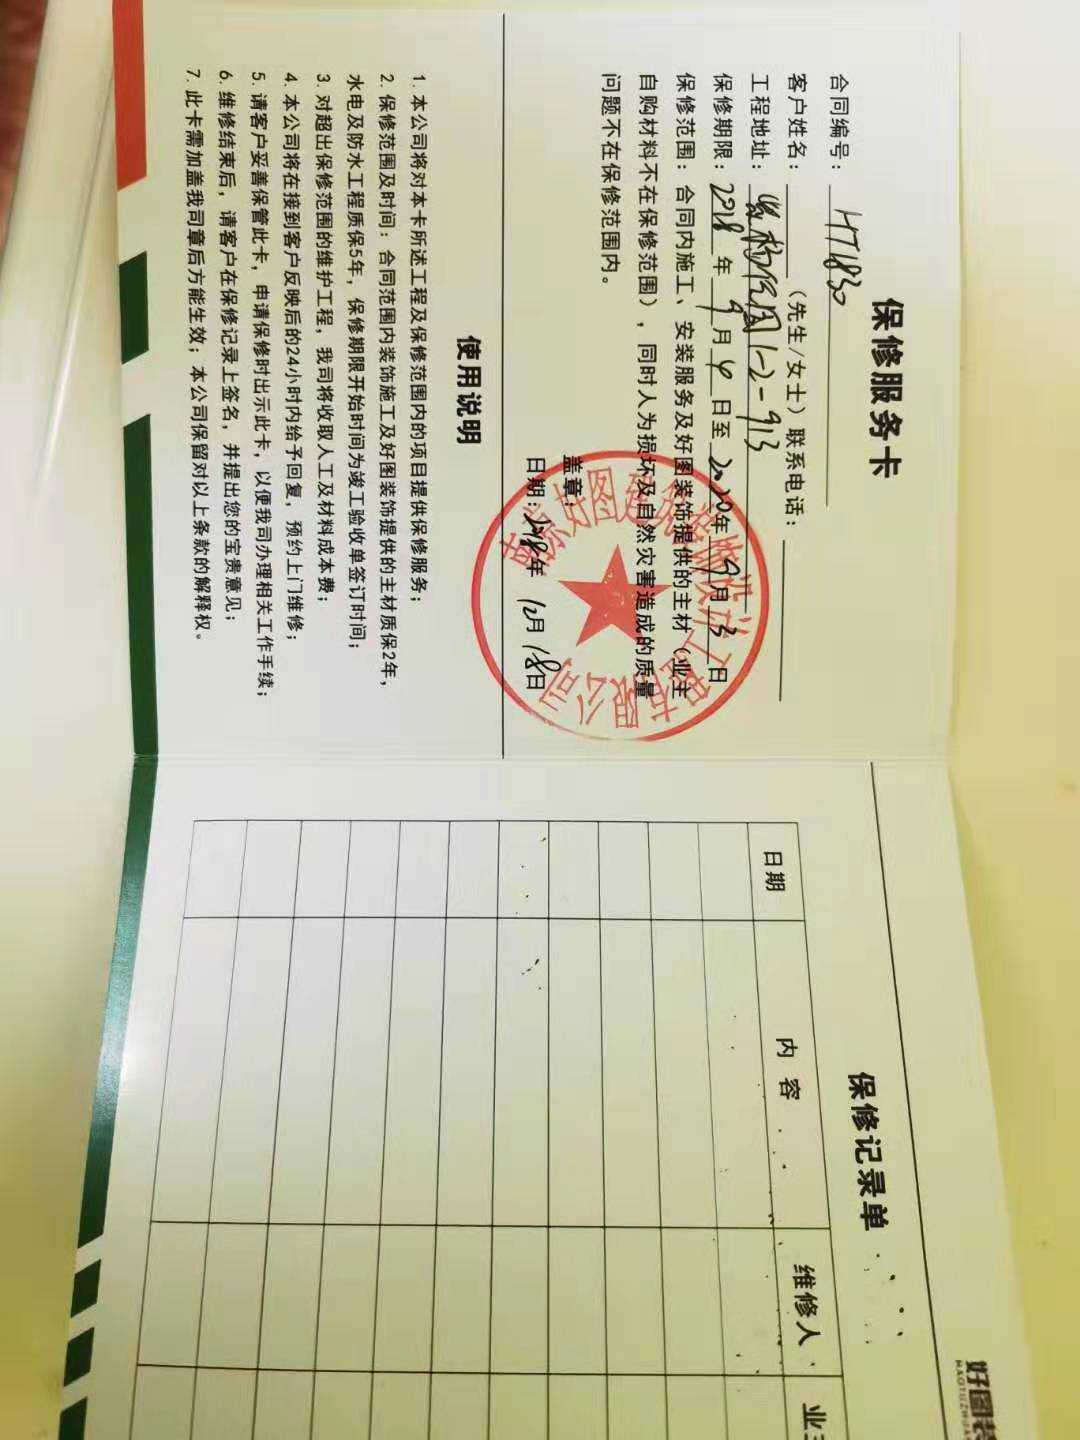 保修服务卡
合同编号：HT1830
客户姓名：（先生/女士）联系电话：
工程地址：1-2-913
保修期限：2018年9月4日至2020年9月3日
保修范围：合同内施工、安装服务及好图装饰提供的主材（业主
自购材料不在保修范围），同时人为损坏及自然灾害造成的质量
问题不在保修范围内。
盖章：
日期：2018年12月18日
南京好图建筑装饰设计工程有限公司
使用说明
1. 本公司将对本卡所述工程及保修范围内的项目提供保修服务；
2. 保修范围及时间：合同范围内装饰施工及好图装饰提供的主材质保2年，
水电及防水工程质保5年，保修期限开始时间为竣工验收单签订时间；
3. 对超出保修范围的维护工程，我司将收取人工及材料成本费；
4. 本公司将在接到客户反映后的24小时内给予回复，预约上门维修；
5. 请客户妥善保管此卡，申请保修时出示此卡，以便我司办理相关工作手续；
6. 维修结束后，请客户在保修记录上签名，并提出您的宝贵意见；
7. 此卡需加盖我司章后方能生效；本公司保留对以上条款的解释权。
好图装
HAOTUZHUA
保修记录单
日期 内容 维修人 业主